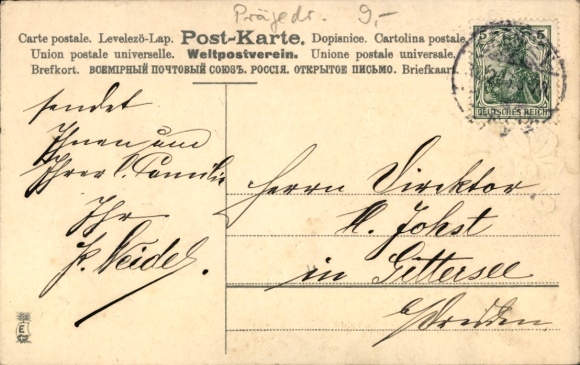 Prägedr. 9,-
Carte postale. Levelezö-Lap. Post-Karte. Dopisnice. Cartolina postale.
Union postale universelle. Weltpostverein. Unione postale universale.
Brefkort. ВСЕМІРНЫЙ ПОЧТОВЫЙ СОЮЗЪ. РОССІЯ. ОТКРЫТОЕ ПИСЬМО. Briefkaart
5 5
DEUTSCHES REICH
sendet
Ihnen und
Ihrer l. Familie
Ihr
P. Neidel.
Herrn Direktor
H. Johst
in Gittersee
b/Dresden
E